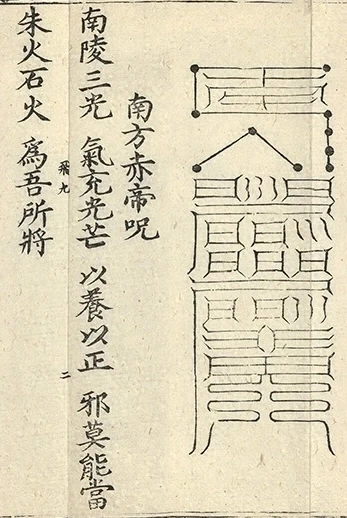 南方赤帝呪
南陵三光 氣充光芒 以養以正 邪莫能當
飛九
二
朱火石火 爲吾所將